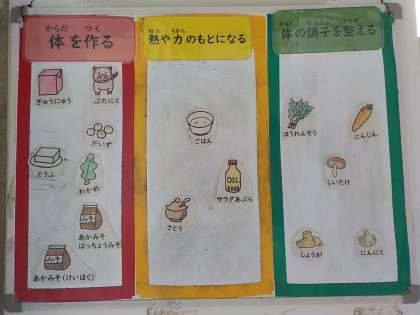 からだ つく
体を作る
ぎゅうにゅう
ぶたにく
だいず
とうふ
わかめ
あかみそ
はっちょうみそ
あかみそ(けいほく)
ねつ ちから
熱や力のもとになる
ごはん
OIL
サラダあぶら
さとう
からだ ちょうし ととの
体の調子を整える
ほうれんそう
にんじん
しいたけ
しょうが
にんにく